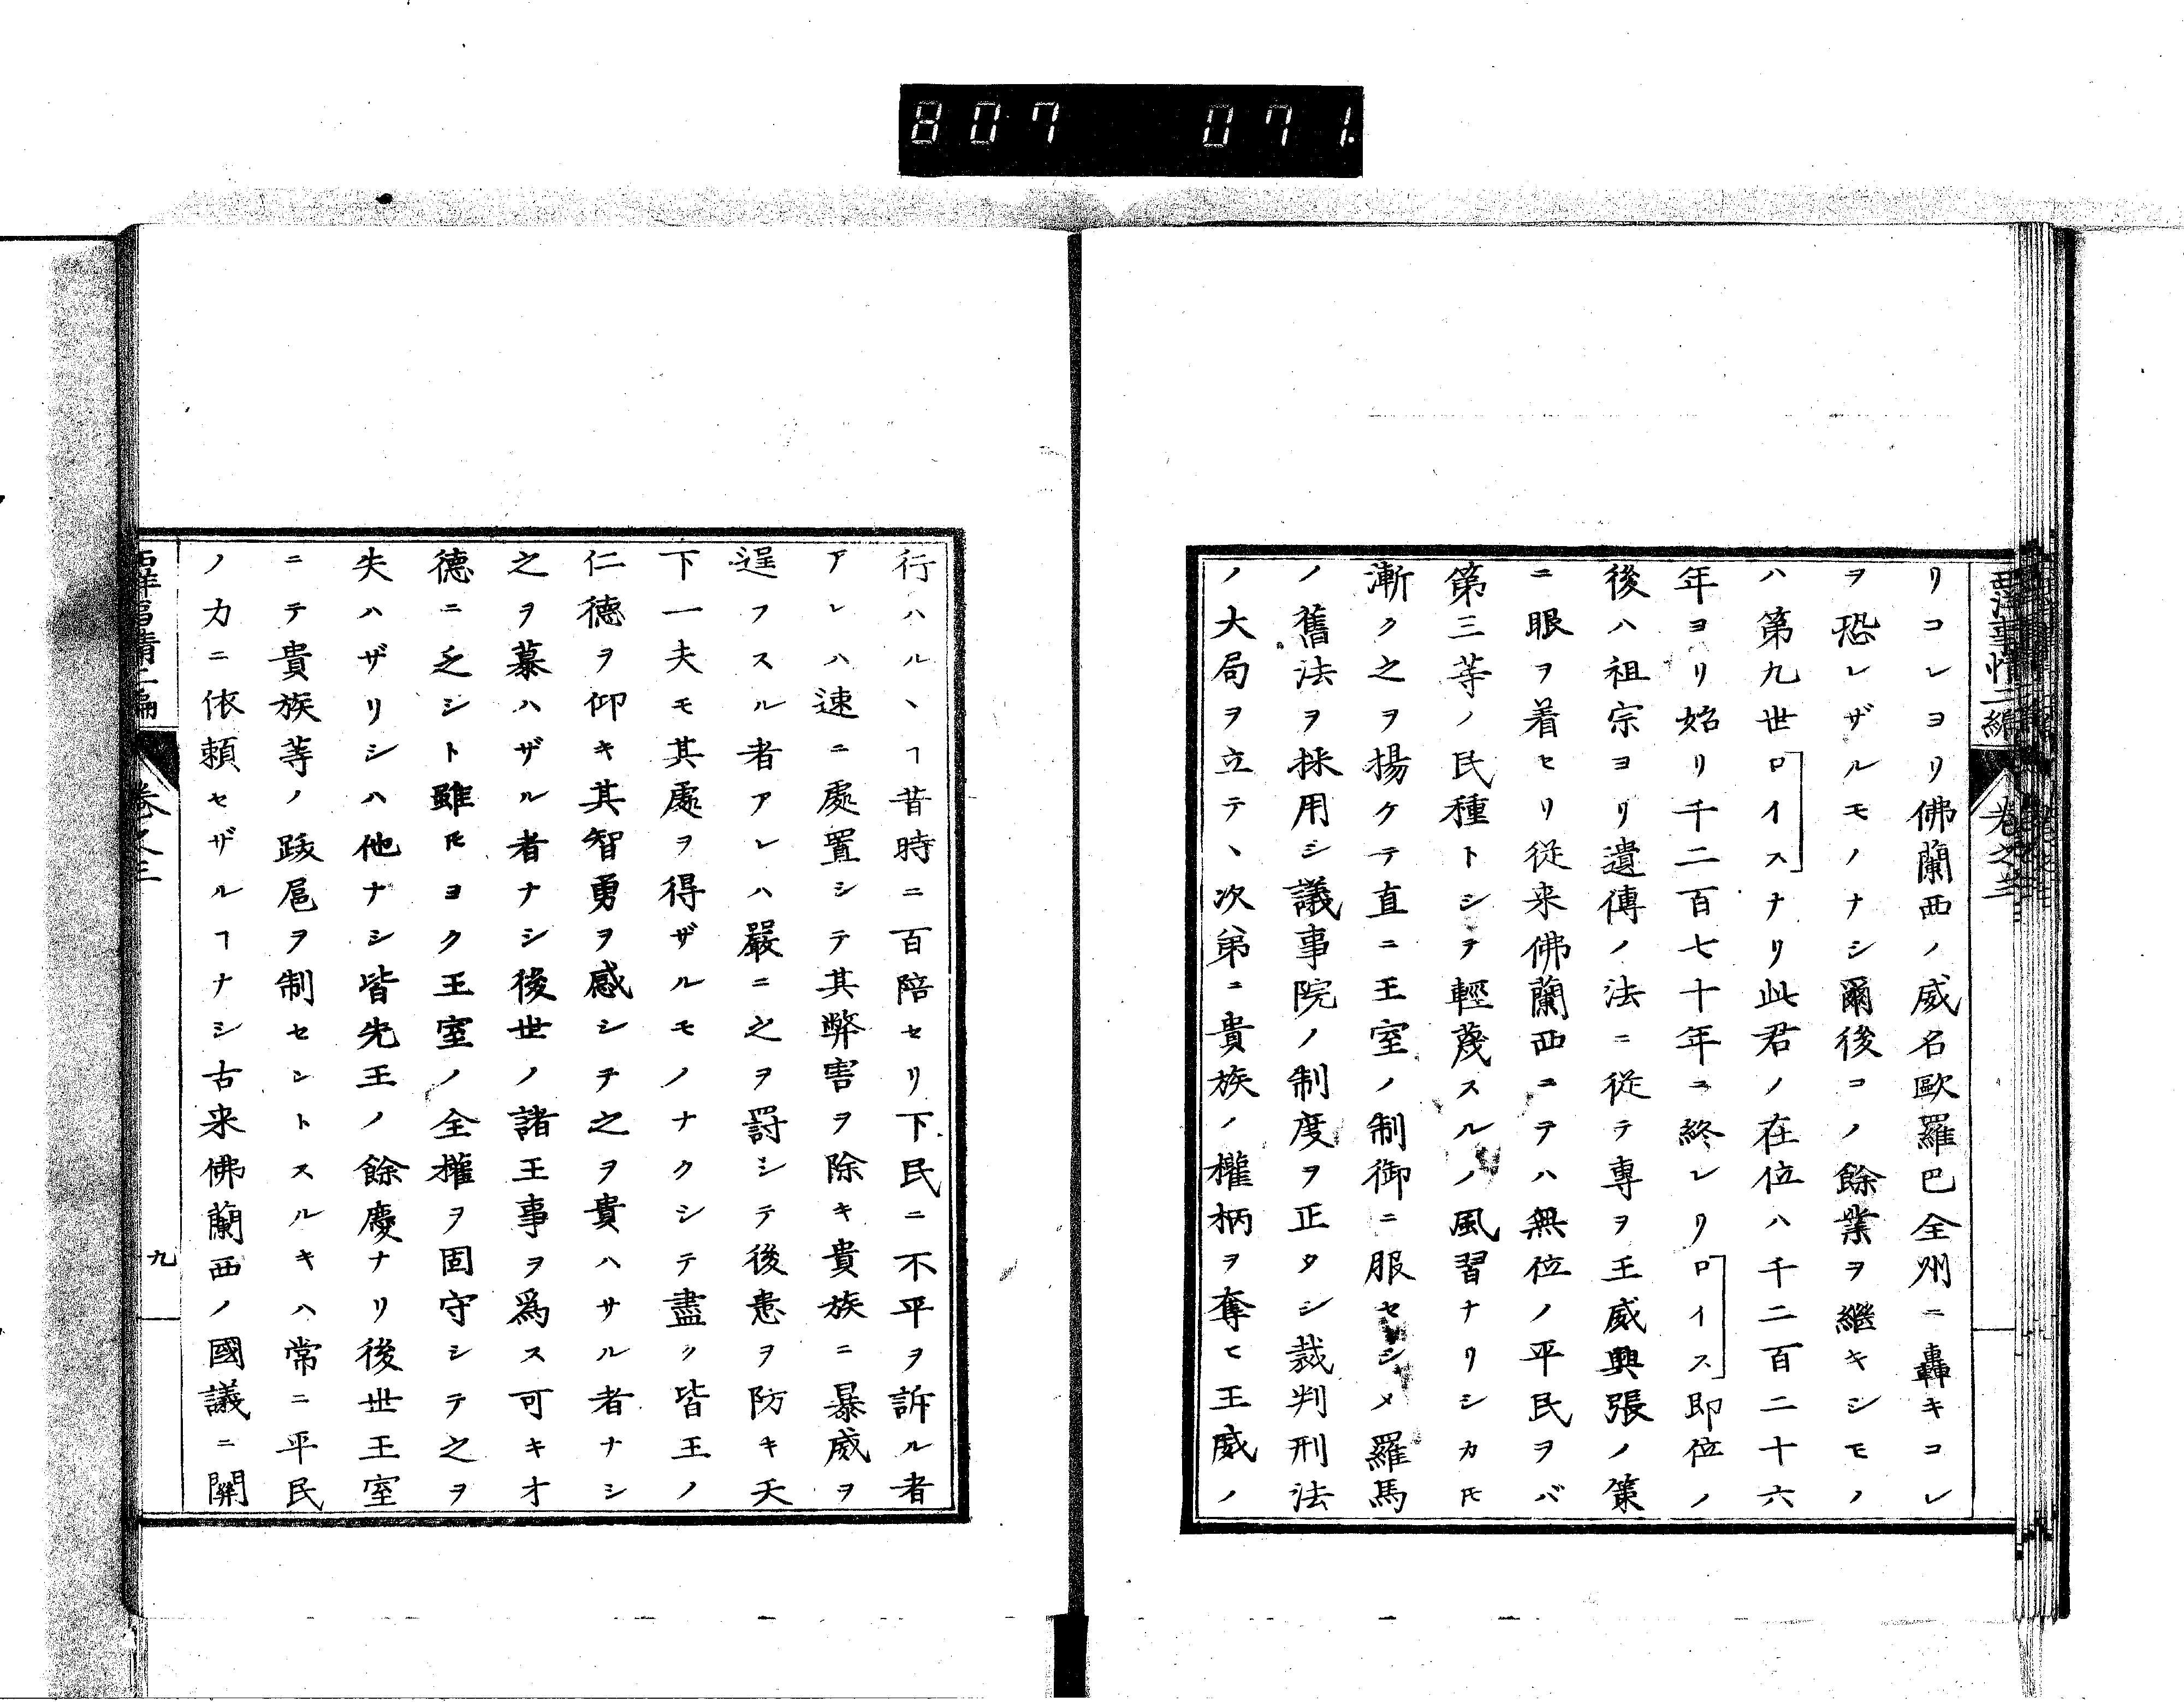 807 071.
西洋事情二編 卷之三
リコレヨリ佛蘭西ノ威名歐羅巴全州ニ轟キコレ
ヲ恐レザルモノナシ爾後コノ餘業ヲ繼キシモノ
ハ第九世ロイスナリ此君ノ在位ハ千二百二十六
年ヨリ始リ千二百七十年ニ終レリロイス即位ノ
後ハ祖宗ヨリ遺傳ノ法ニ從テ專ヲ王威興張ノ策
ニ眼ヲ着セリ從来佛蘭西ニテハ無位ノ平民ヲバ
第三等ノ民種トシヲ輕蔑スルノ風習ナリシカ𪜈
漸ク之ヲ揚ケテ直ニ王室ノ制御ニ服セシメ羅馬
ノ舊法ヲ採用シ議事院ノ制度ヲ正タシ裁判刑法
ノ大局ヲ立テヽ次第ニ貴族ノ權柄ヲ奪ヒ王威ノ
行ハルヽヿ昔時ニ百陪セリ下民ニ不平ヲ訴ル者
アレハ速ニ處置シテ其弊害ヲ除キ貴族ニ暴威ヲ
逞フスル者アレハ嚴ニ之ヲ罸シテ後患ヲ防キ天
下一夫モ其處ヲ得ザルモノナクシテ盡ク皆王ノ
仁德ヲ仰キ其智勇ヲ感シテ之ヲ貴ハサル者ナシ
之ヲ慕ハザル者ナシ後世ノ諸王事ヲ爲ス可キオ
德ニ乏シト雖𪜈ヨク王室ノ全權ヲ固守シテ之ヲ
失ハザリシハ他ナシ皆先王ノ餘慶ナリ後世王室
ニテ貴族等ノ跋扈ヲ制セントスルキハ常ニ平民
ノカニ依頼セザルヿナシ古来佛蘭西ノ國議ニ關
西洋事情二編 卷之三 九